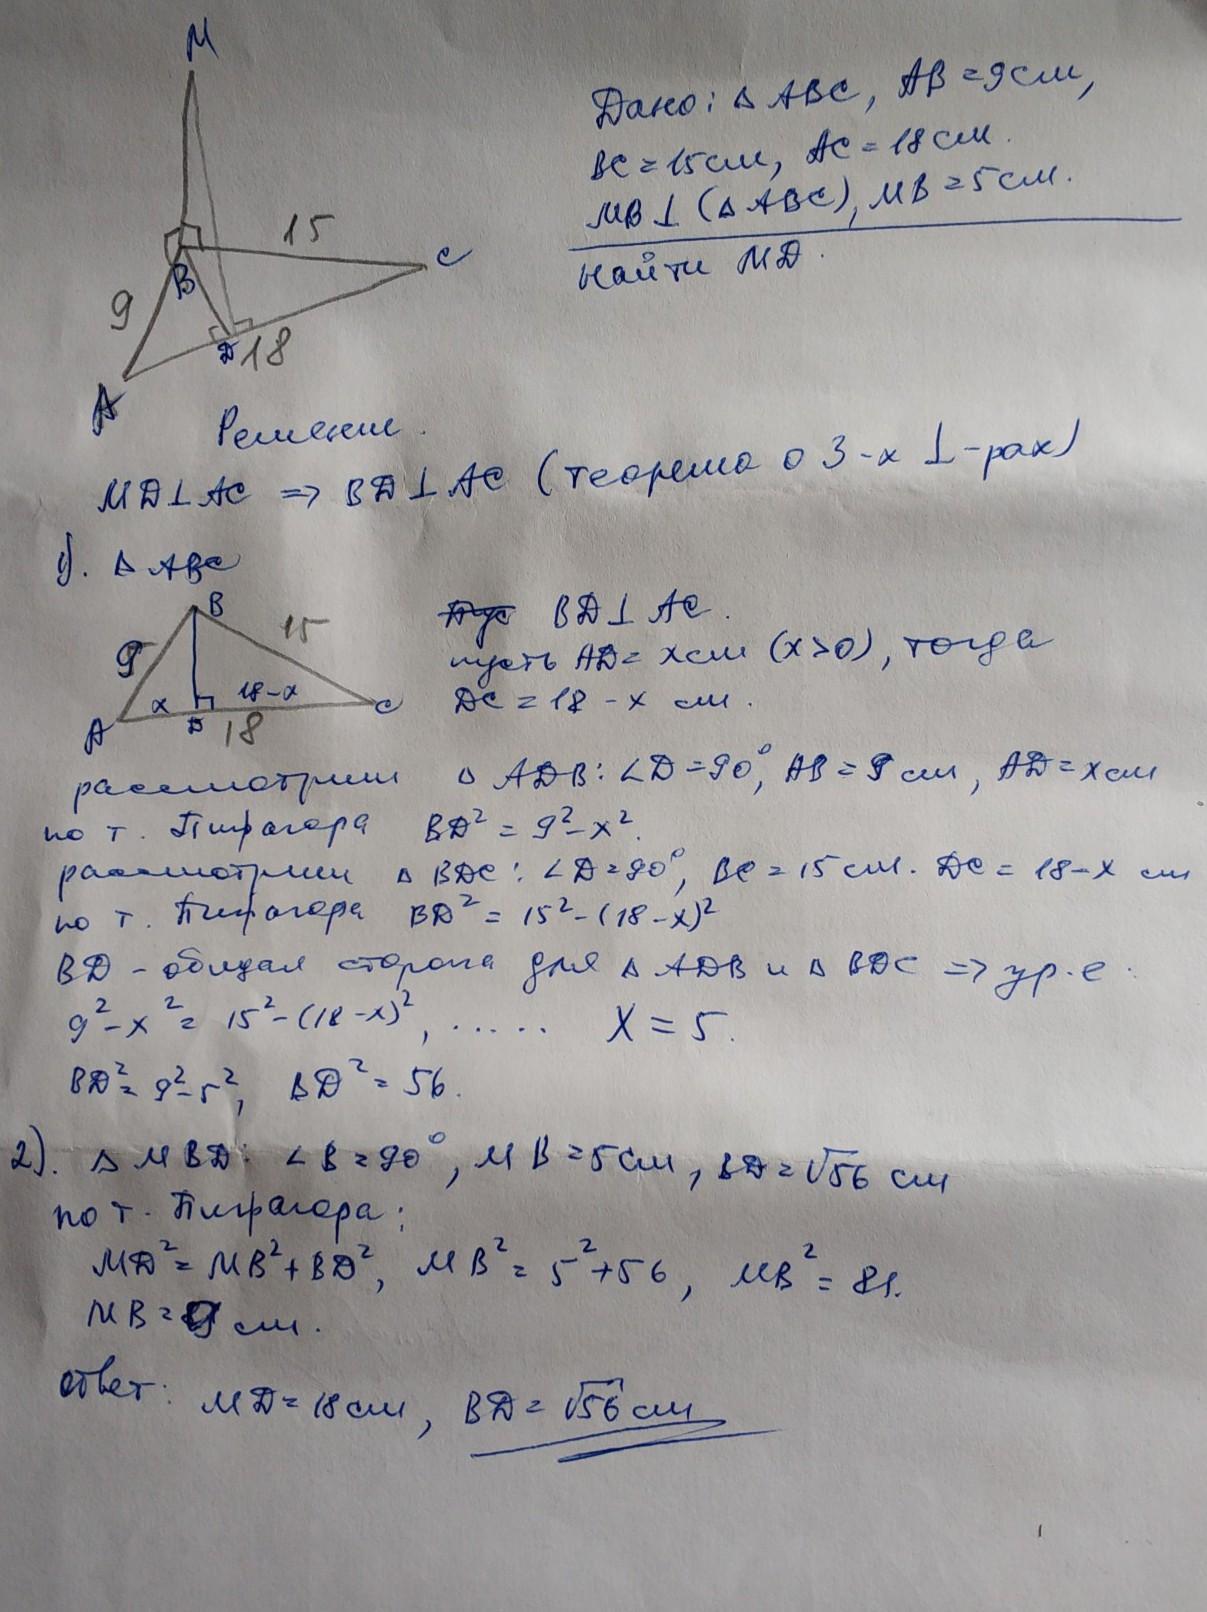 M
Дано: △ ABC, AB = 9 см,
BC = 15 см, AC = 18 см.
MB ⊥ (△ ABC), MB = 5 см.
Найти MD.
15
C
B
9
D
18
A
Решение.
MD ⊥ AC => BD ⊥ AC (теорема о 3-х ⊥-рах)
1). △ ABC
B
9
15
x
18-x
A
D
18
C
BD ⊥ AC.
пусть AD = x см (x>0), тогда
DC = 18 - x см.
рассмотрим △ ADB: ∠D = 90°, AB = 9 см, AD = x см
по т. Пифагора BD² = 9² - x².
рассмотрим △ BDC: ∠D = 90°, BC = 15 см. DC = 18 - x см
по т. Пифагора BD² = 15² - (18 - x)²
BD - общая сторона для △ ADB и △ BDC => ур-е:
9² - x² = 15² - (18 - x)², ...... X = 5.
BD² = 9² - 5², BD² = 56.
2). △ MBD: ∠B = 90°, MB = 5 см, BD = √56 см
по т. Пифагора:
MD² = MB² + BD², MB² = 5² + 56, MB² = 81.
MB = 9 см.
ответ: MD = 18 см, BD = √56 см